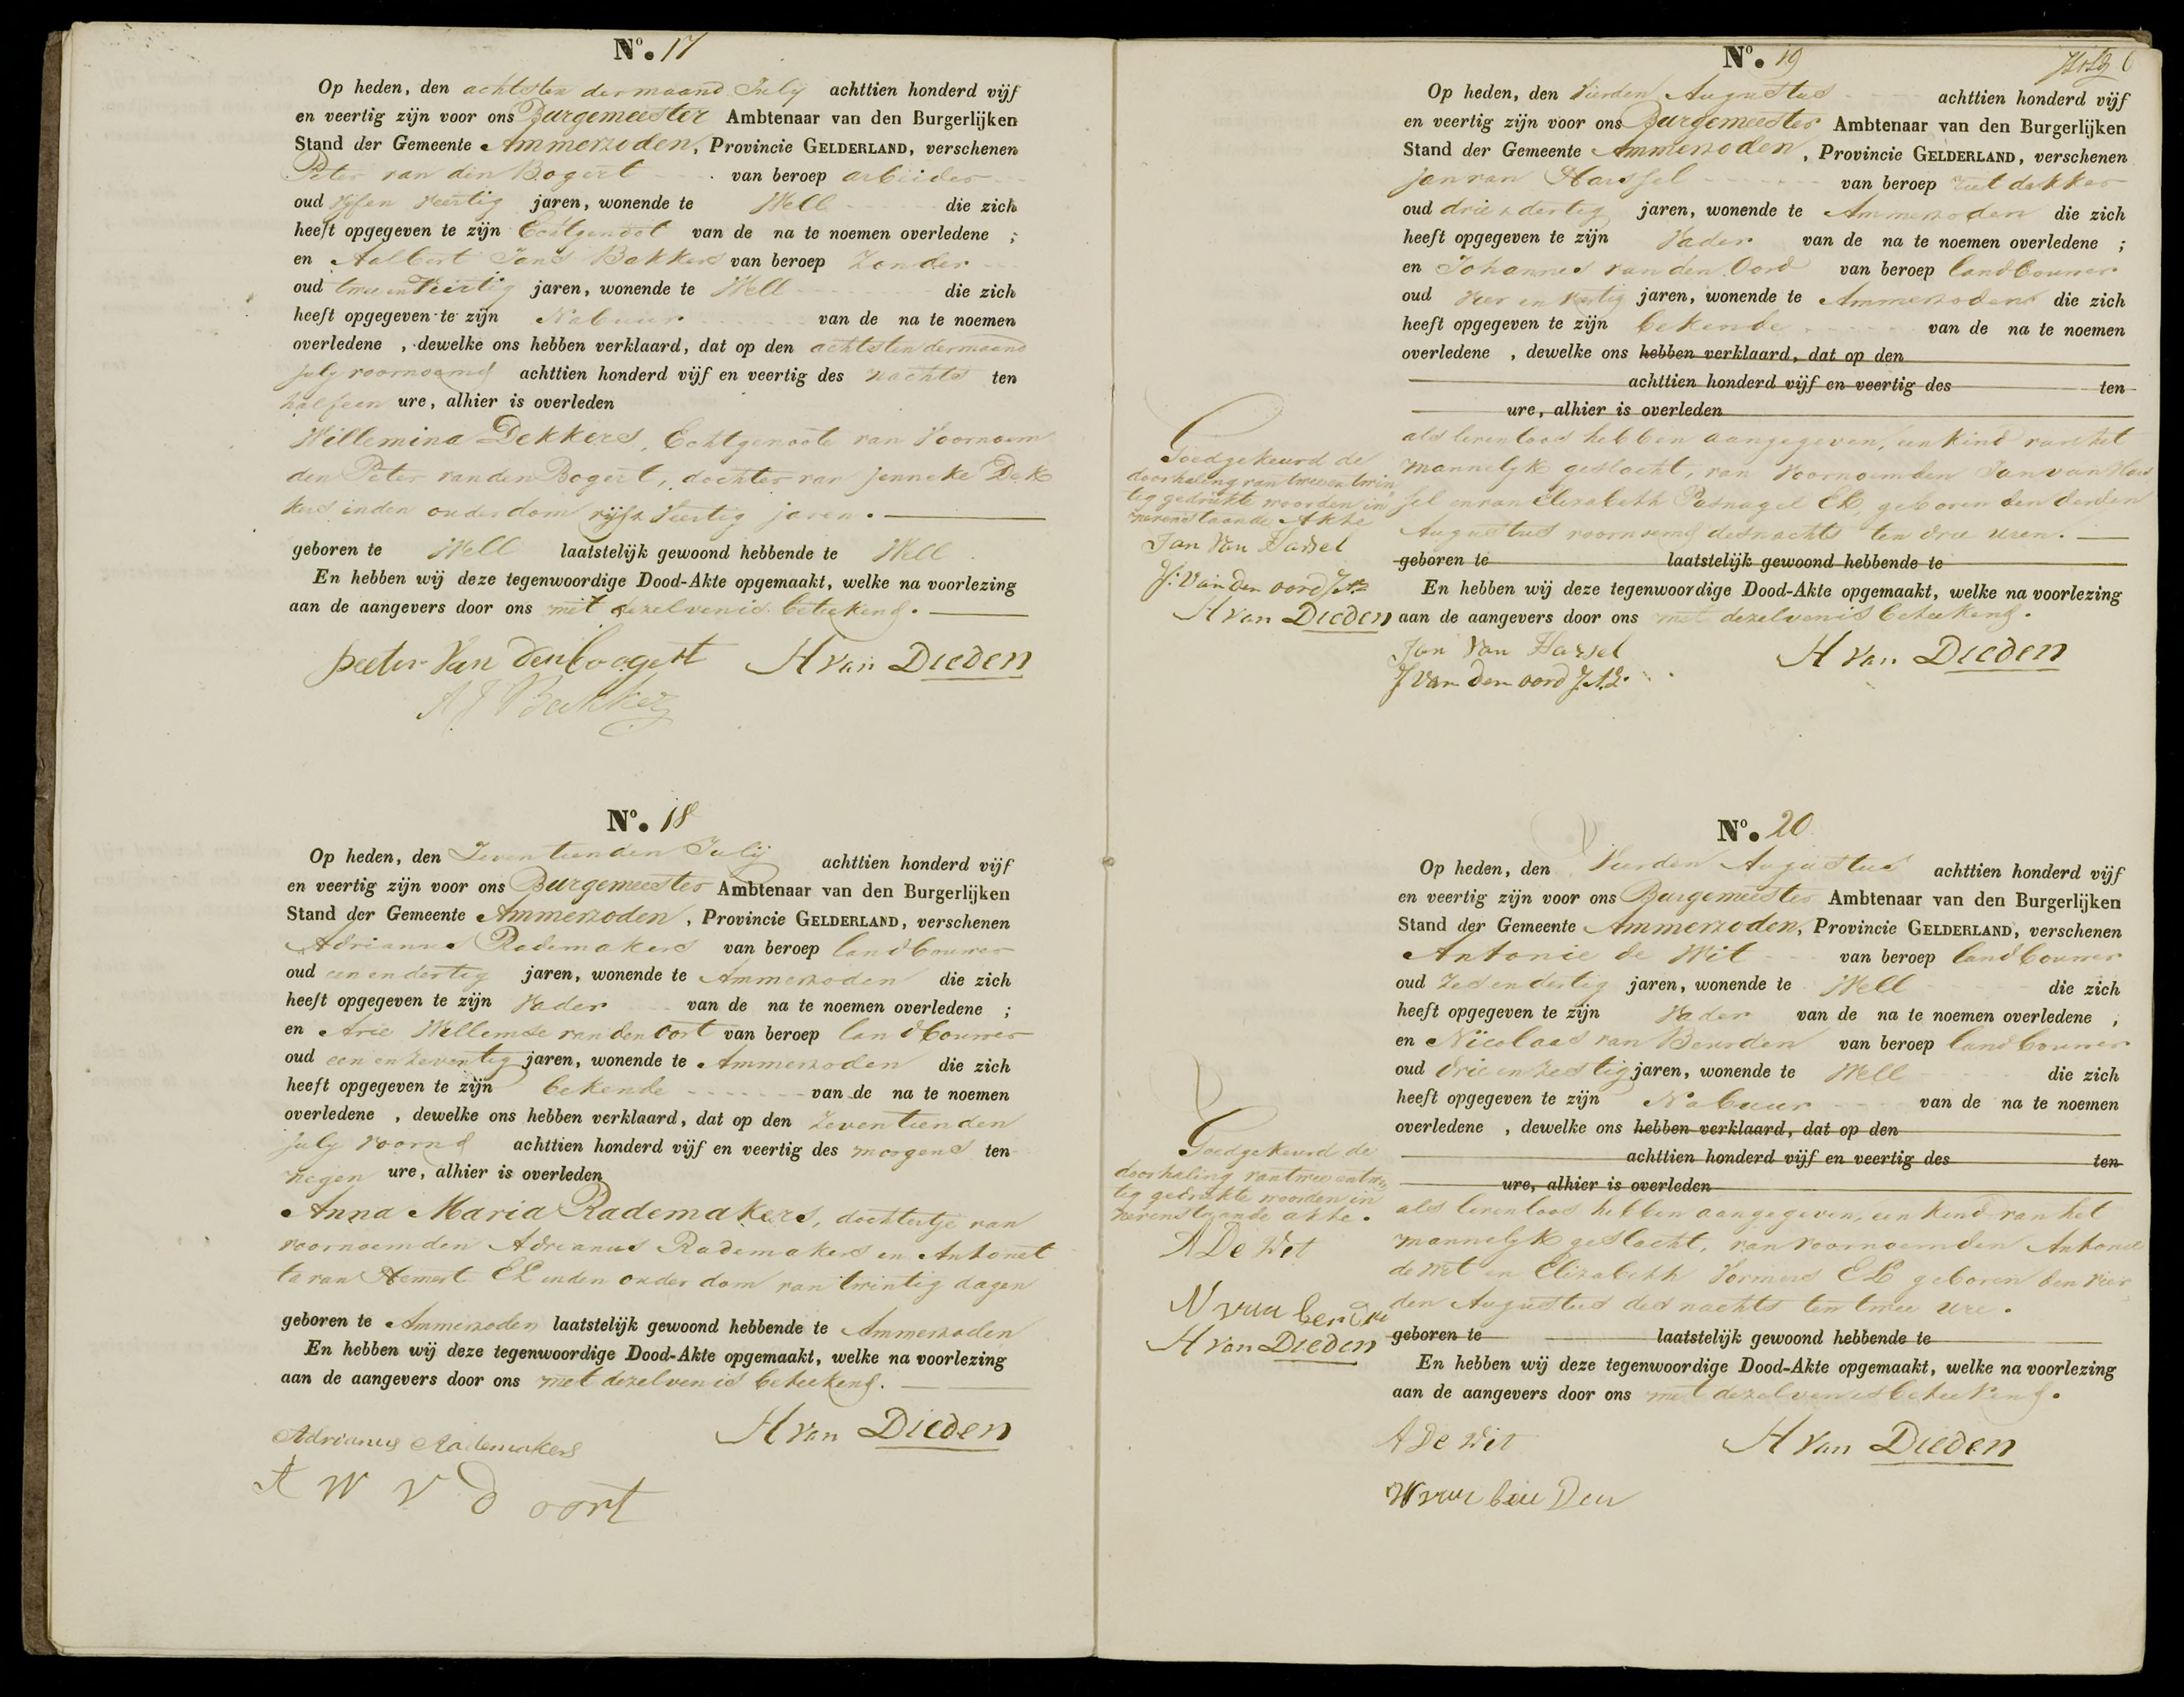 Nº. 17
Op heden, den achtsten dermaand July achttien honderd vijf
en veertig zijn voor ons Burgemeester Ambtenaar van den Burgerlijken
Stand der Gemeente Ammerzoden, Provincie GELDERLAND, verschenen
Peter van den Bogert van beroep arbeider
oud vyfen veertig jaren, wonende te Well die zich
heeft opgegeven te zijn Echtgenoot van de na te noemen overledene ;
en Aalbert Jans Bakkers van beroep Zonder
oud twee en Veertig jaren, wonende te Well die zich
heeft opgegeven te zijn Nabuur van de na te noemen
overledene , dewelke ons hebben verklaard, dat op den achtsten dermaand
July voornoemd achttien honderd vijf en veertig des nachts ten
half een ure, alhier is overleden
Willemina Dekkers, Echtgenoote van Voornoem
den Peter van den Bogert, dochter van Jenneke Dek
kers in den ouderdom vijf & Veertig jaren.
geboren te Well laatstelijk gewoond hebbende te Well.
En hebben wij deze tegenwoordige Dood-Akte opgemaakt, welke na voorlezing
aan de aangevers door ons met dezelven is beteekend.
peeter Van den boogert H van Dieden
A J Bakker
Nº. 18
Op heden, den Zeventienden July achttien honderd vijf
en veertig zijn voor ons Burgemeester Ambtenaar van den Burgerlijken
Stand der Gemeente Ammerzoden, Provincie GELDERLAND, verschenen
Adrianus Rademakers van beroep landbouwer
oud een en dertig jaren, wonende te Ammerzoden die zich
heeft opgegeven te zijn Vader van de na te noemen overledene ;
en Arie Willemse van den Oort van beroep landbouwer
oud een en zeventig jaren, wonende te Ammerzoden die zich
heeft opgegeven te zijn bekende van de na te noemen
overledene , dewelke ons hebben verklaard, dat op den Zeventienden
July voornd achttien honderd vijf en veertig des morgens ten
negen ure, alhier is overleden
Anna Maria Rademakers, dochtertje van
voornoemden Adrianus Rademakers en Antonet
ta van Hemert EL in den ouderdom van twintig dagen
geboren te Ammerzoden laatstelijk gewoond hebbende te Ammerzoden
En hebben wij deze tegenwoordige Dood-Akte opgemaakt, welke na voorlezing
aan de aangevers door ons met dezelven is beteekend.
Adrianus Rademakers H van Dieden
A W V D oort
Nº. 19
6
Op heden, den Vierden Augustus achttien honderd vijf
en veertig zijn voor ons Burgemeester Ambtenaar van den Burgerlijken
Stand der Gemeente Ammerzoden, Provincie GELDERLAND, verschenen
Jan van Hassel van beroep rietdekker
oud drie & dertig jaren, wonende te Ammerzoden die zich
heeft opgegeven te zijn Vader van de na te noemen overledene ;
en Johannes van den Oord van beroep landbouwer
oud vier en veertig jaren, wonende te Ammerzoden die zich
heeft opgegeven te zijn bekende van de na te noemen
overledene , dewelke ons hebben verklaard, dat op den
achttien honderd vijf en veertig des ten
ure, alhier is overleden
als levenloos hebben aangegeven, een kind van het
mannelyk geslacht, van Voornoemden Jan van Has
sel en van Elizabeth Pasnagel EL, geboren den derden
Augustus voornoemd des nachts ten drie uren.
geboren te laatstelijk gewoond hebbende te
En hebben wij deze tegenwoordige Dood-Akte opgemaakt, welke na voorlezing
aan de aangevers door ons met dezelven is beteekend.
Jan Van Hassel H van Dieden
J Van den oord J.A.z.
Goedgekeurd de
doorhaling van twee en twin
tig gedrukte woorden in
nevenstaande Akte
Jan Van Hassel
J. Van den oord J.A.z
H van Dieden
Nº. 20
Op heden, den Vierden Augustus achttien honderd vijf
en veertig zijn voor ons Burgemeester Ambtenaar van den Burgerlijken
Stand der Gemeente Ammerzoden, Provincie GELDERLAND, verschenen
Antonie de Wit van beroep landbouwer
oud Zes en dertig jaren, wonende te Well die zich
heeft opgegeven te zijn Vader van de na te noemen overledene ;
en Nicolaas van Beurden van beroep landbouwer
oud drie en zestig jaren, wonende te Well die zich
heeft opgegeven te zijn Nabuur van de na te noemen
overledene , dewelke ons hebben verklaard, dat op den
achttien honderd vijf en veertig des ten
ure, alhier is overleden
als levenloos hebben aangegeven, een kind van het
mannelyk geslacht, van voornoemden Antonie
de Wit en Elizabeth Vermeus EL geboren den vier
den Augustus des nachts ten twee ure.
geboren te laatstelijk gewoond hebbende te
En hebben wij deze tegenwoordige Dood-Akte opgemaakt, welke na voorlezing
aan de aangevers door ons met dezelven is beteekend.
A De Wit H van Dieden
N van beurden
Goedgekeurd de
doorhaling van twee en twin
tig gedrukte woorden in
nevenstaande akte.
A De Wit
N van beurden
H van Dieden